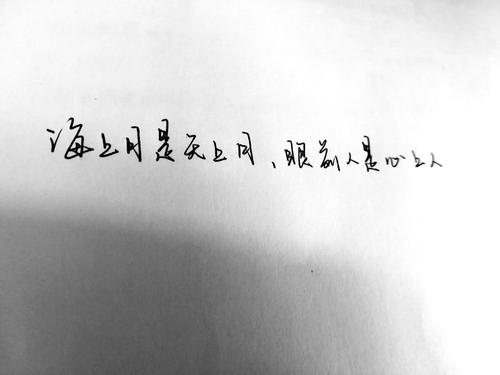 海上月是天上月、眼前人是心上人